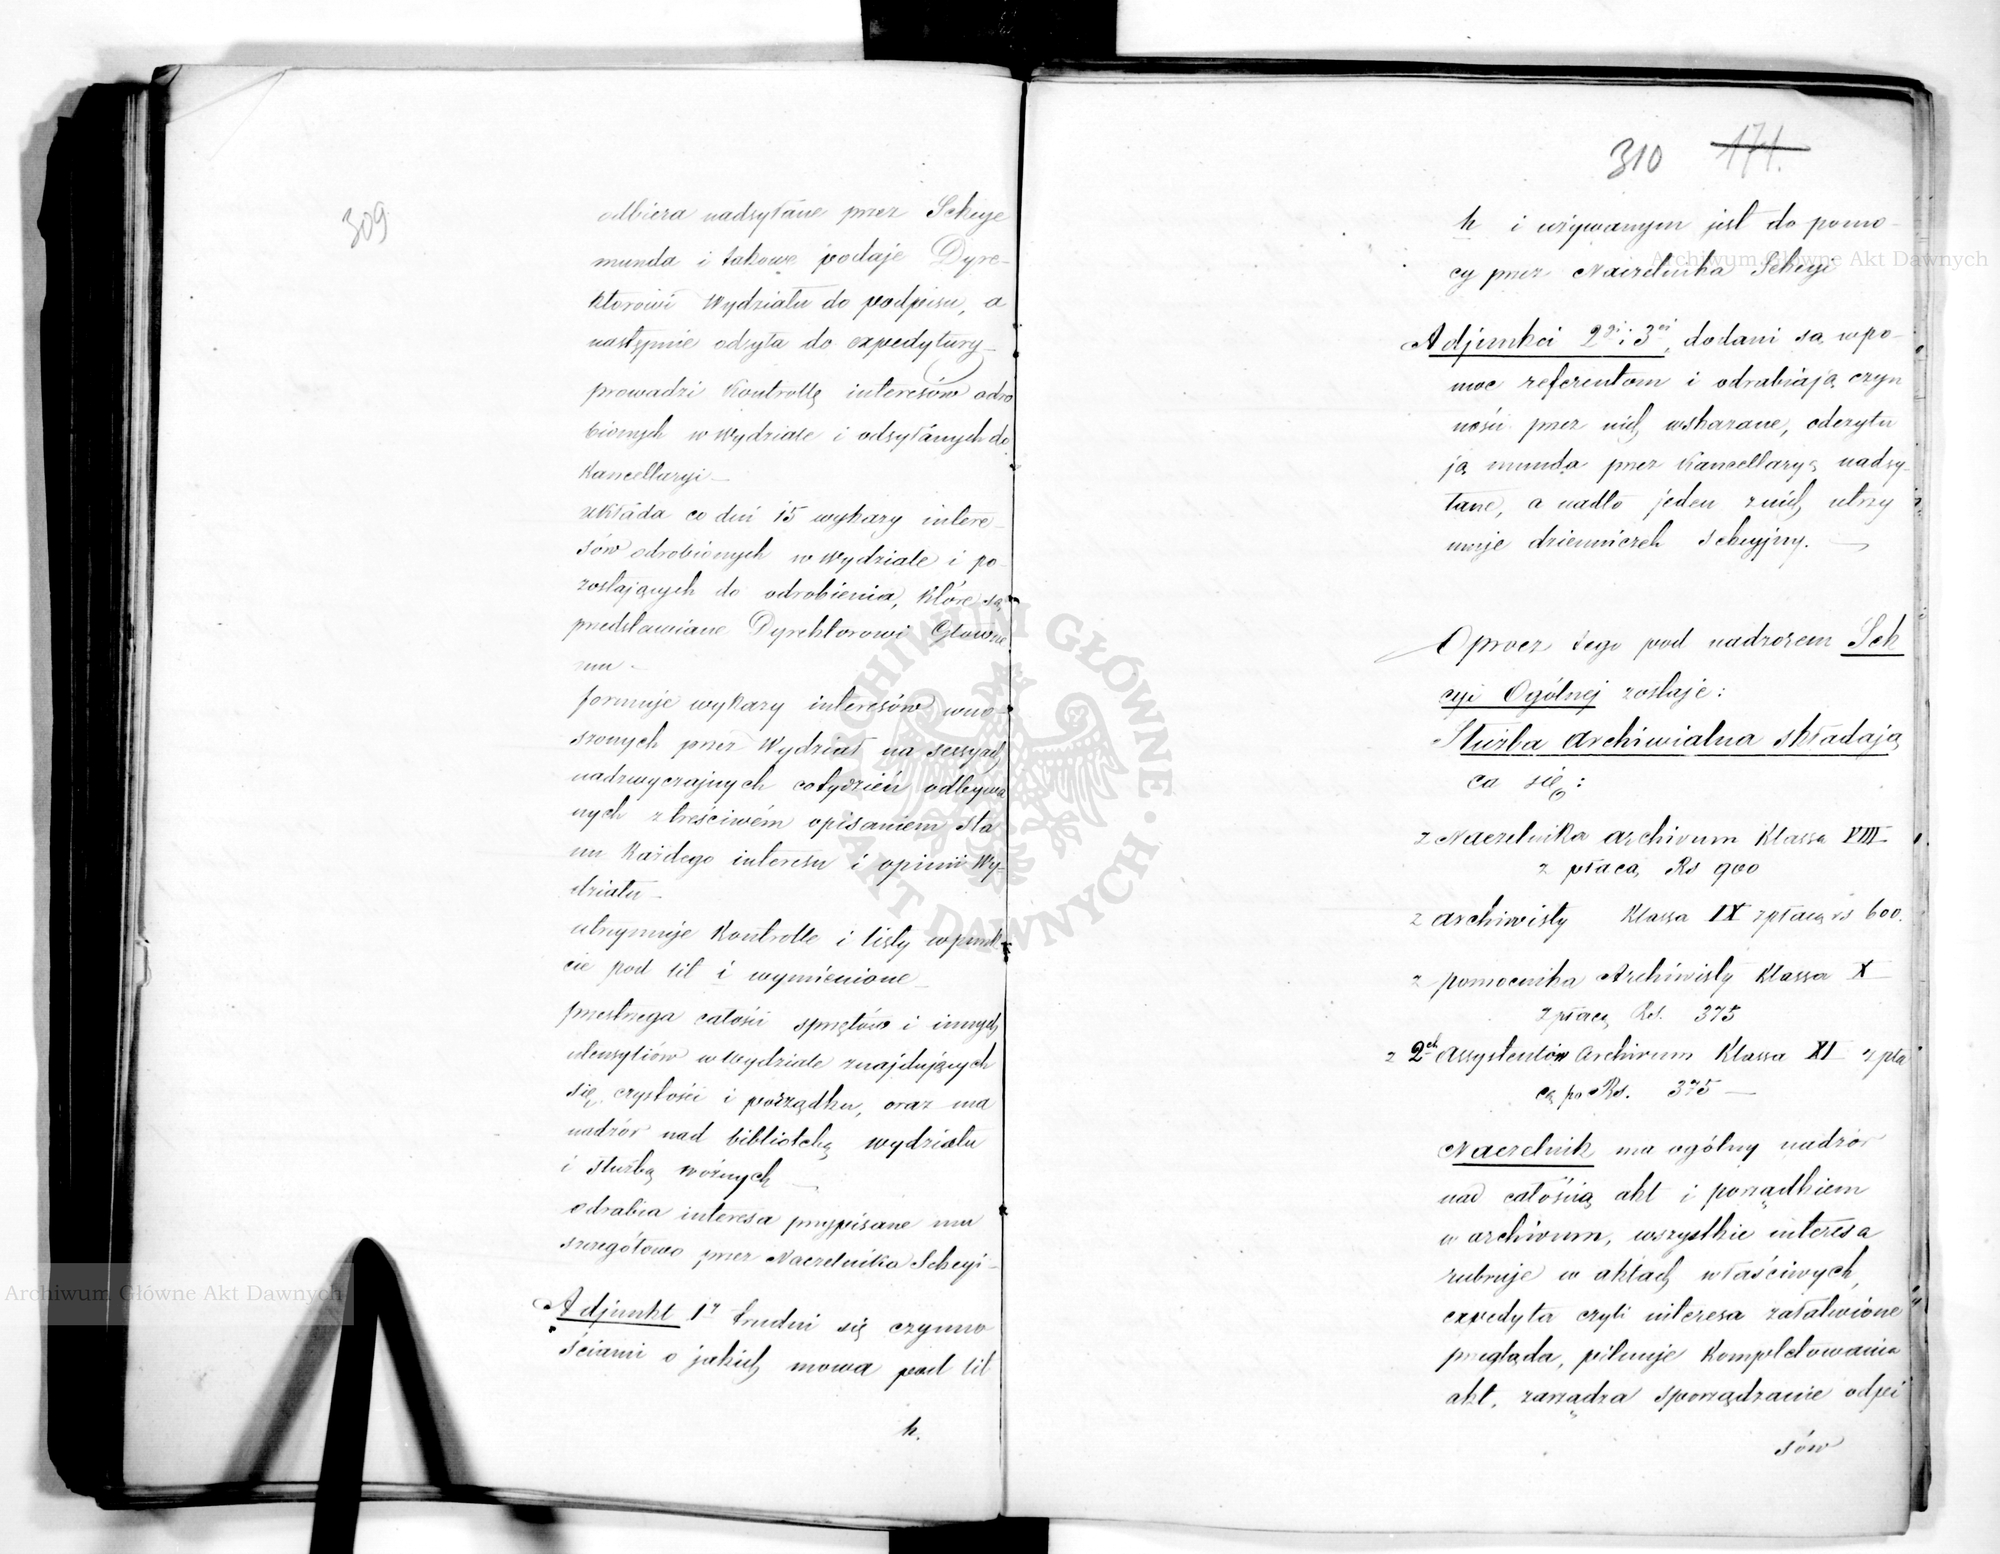 309
odbiera nadsyłane przez Sekcye
munda i takowe podaje Dyre-
ktorowi Wydziału do podpisu, a
następnie odsyła do expedytury_
prowadzi Kontrollę interesów odro
bionych w Wydziale i odsyłanych do
Kancellaryi_
układa co dni 15 wykazy intere-
sów odrobionych w Wydziale i po
zostających do odrobienia, które są
przedstawiane Dyrektorowi Główne
mu_
formuje wykazy interesów wno-
szonych przez Wydział na sessyach
nadzwyczajnych cotydzień odbywa
nych z treściwém opisaniem sta
nu Każdego interesu i opinii Wy-
działu_
utrzymuje Kontrolle i listy w punk-
cie pod lit i wymienione_
przestrzega całości sprzętów i innych
utensyliów w Wydziale znajdujących
się, czystości i porządku, oraz ma
nadzór nad biblioteką wydziału
i służbą woźnych_
odrabia interesa przypisane mu
szczegółowo przez Naczelnika Sekcyi_
Adjunkt 1y trudni się czynno
ściami o jakich mowa pod lit
h.
310 171.
h i używanym jest do pomo-
cy przez Naczelnika Sekcyi
Adjunkci 2gi i 3ci, dodani są w po-
moc referentom i odrabiają czyn
ności przez nich wskazane, odczytu
ją munda przez Kancellaryą nadsy-
łane, a nadto jeden z nich utrzy
muje dzienniczek sekcyjny._
Oprócz tego pod nadzorem Sek
cyi Ogólnej zostaje:
Służba archiwialna składają
ca się:
z Naczelnika archivum Klassa VIII
z płacą Rs 900
z archiwisty Klassa IX z płacą rs 600.
z pomocnika Archiwisty Klassa X
z płacą Rs. 375
z 2ch Assystentów Archivum Klassa XI z pła
cą po Rs. 375_
Naczelnik ma ogólny nadzór
nad całością akt i porządkiem
w archivum, wszystkie interesa
rubruje w aktach właściwych,
expedyta czyli interesa załatwione
przegląda, pilnuje kompletowania
akt, zarządza sporządzanie odpi
sów
Archiwum Główne Akt Dawnych
Archiwum Główne Akt Dawnych
ARCHIWUM GŁÓWNE AKT DAWNYCH